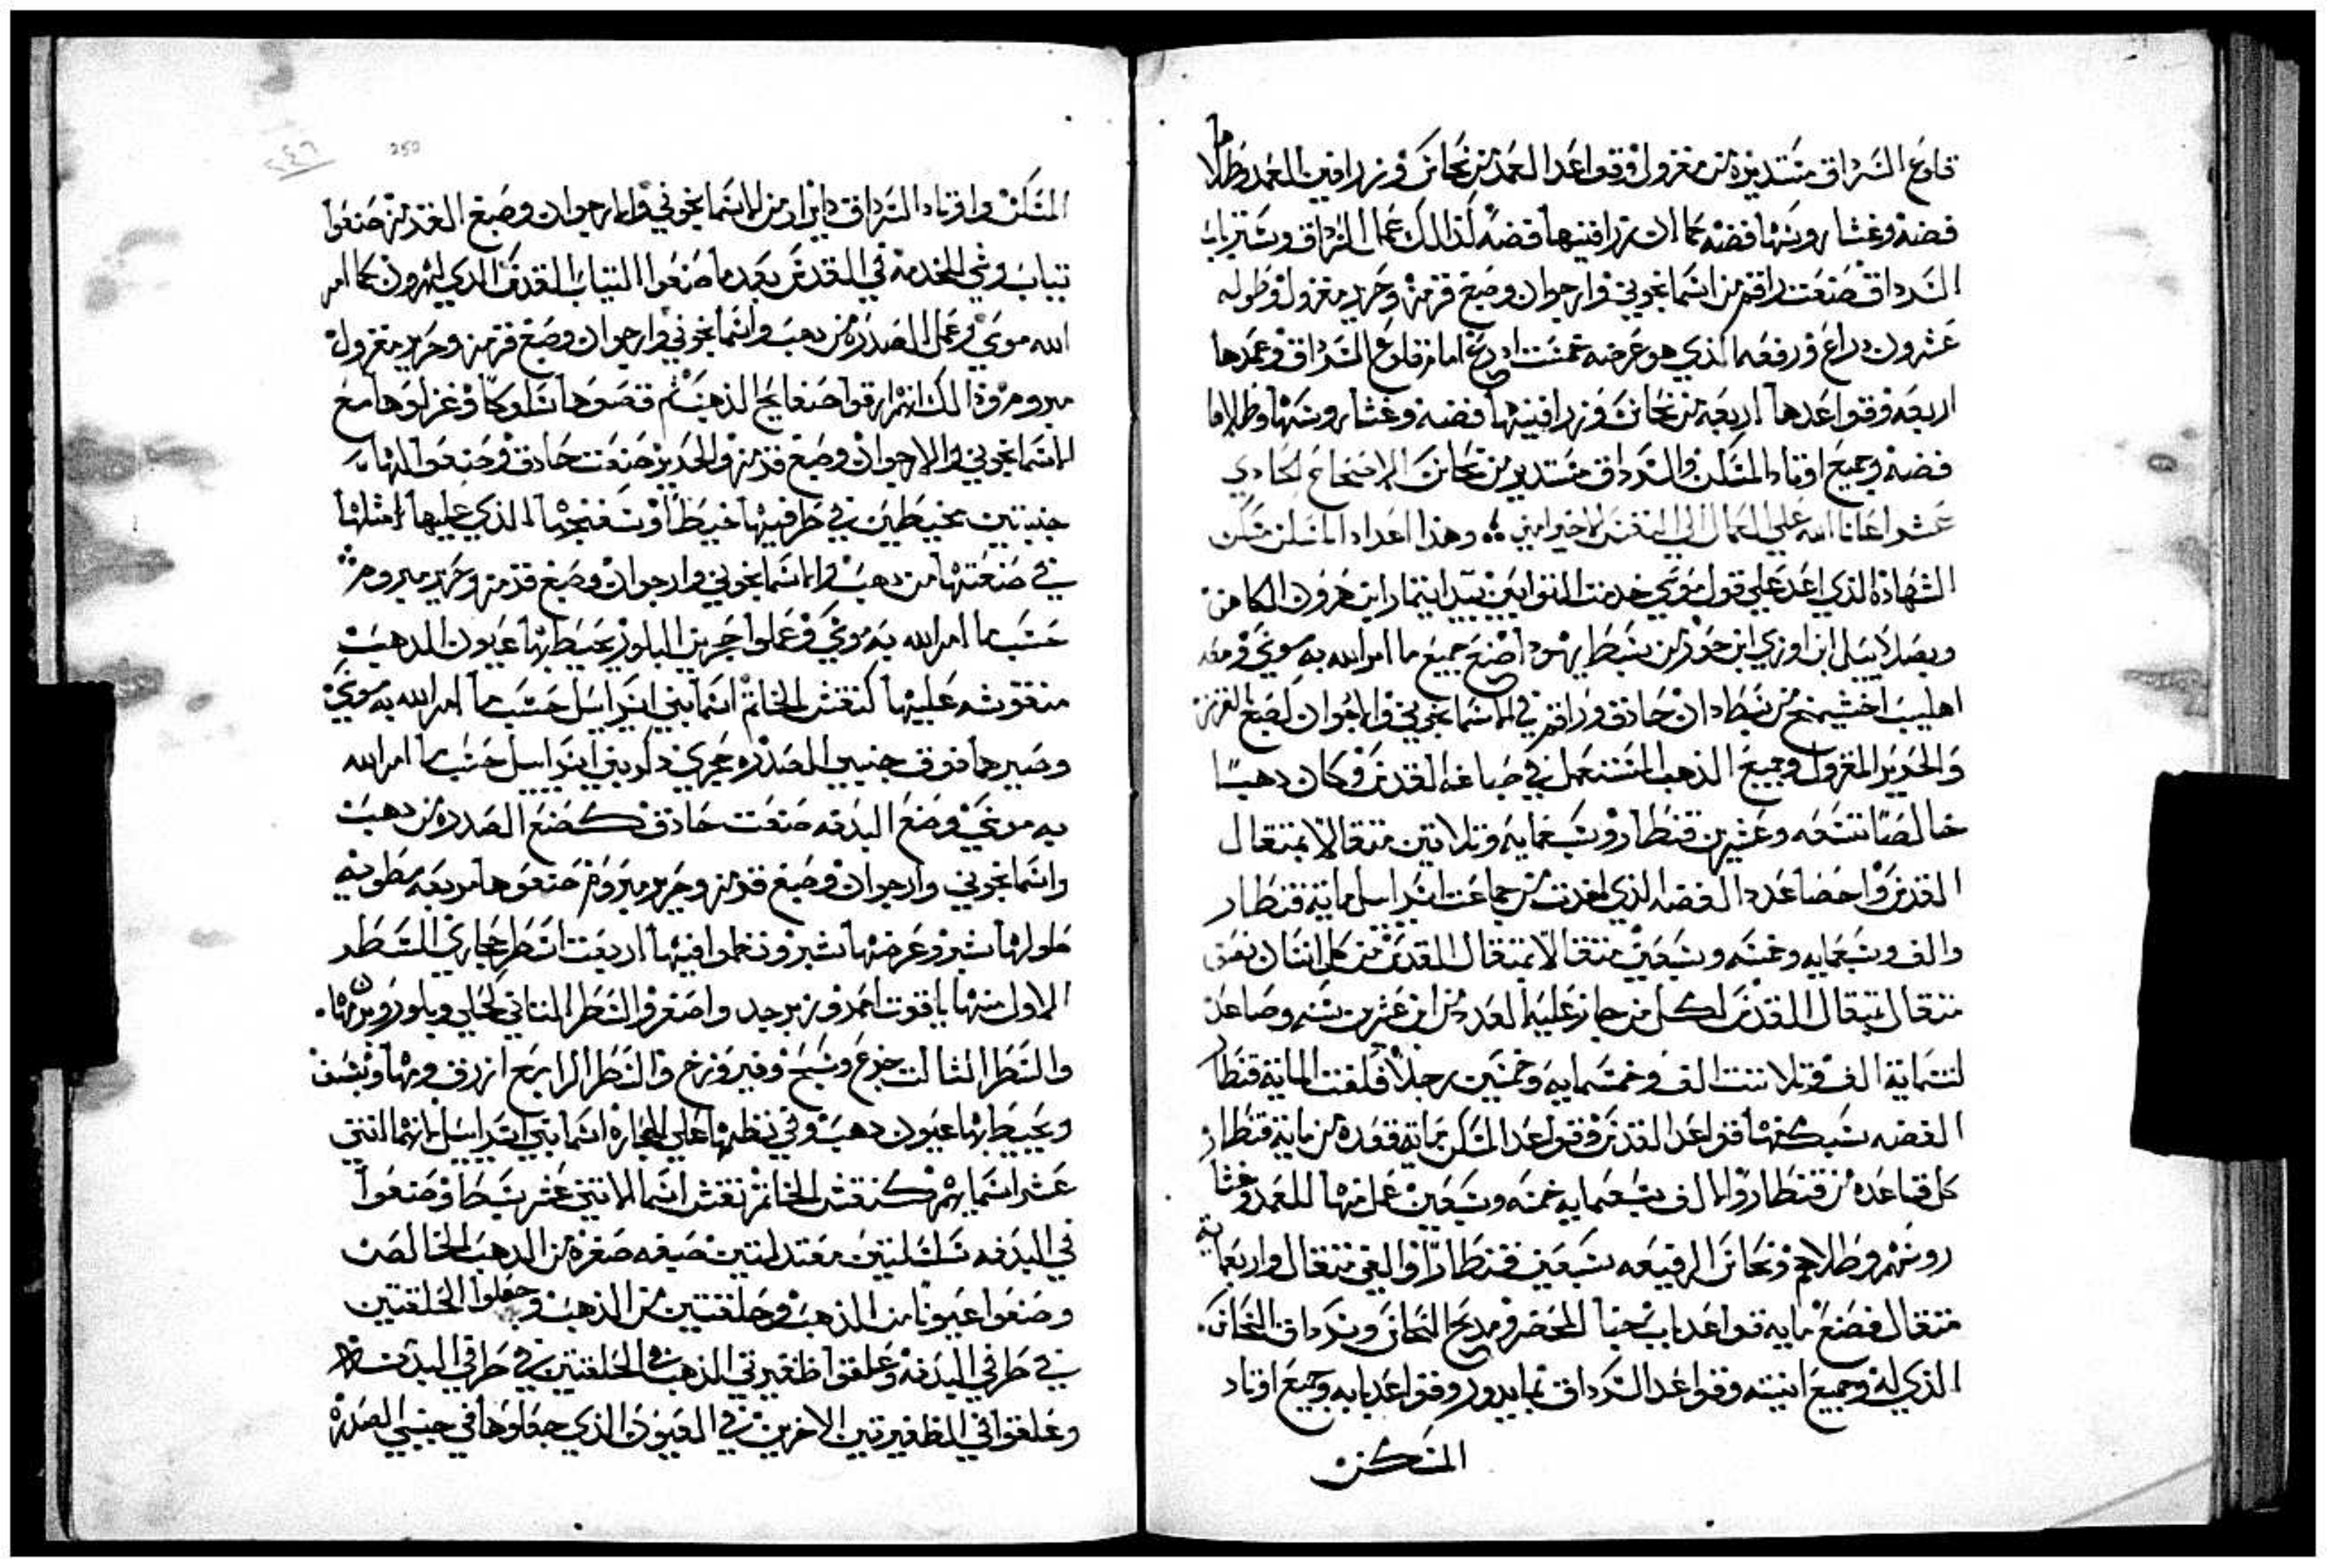 قلوع السرادق مستديره من مغزول وقواعد العمد من نحاس وزرافين العمد وطلاها
فضه وغشا روسها فضه كما ان زرافينها فضه كذالك عمل السرادق وستر باب
السرادق صنعت راقم من اسمانجوني وارجوان وصبغ قرمز وحرير مغزول وطوله
عشرون دراع ورفعه الذي هو عرضه خمست ادرع امام قلوع السرادق وعمدها
اربعه وقواعدها اربعه من نحاس وزرافينها فضه وغشا روسها وطلاها
فضه وجميع اوتاد المسكن والسرادق مستدير من نحاس الاصحاح الحادي
عشر اعانا الله علي الكمال الي النفس الاخير امين وهذا اعداد المسكن مسكن
الشهاده الذي اعد علي قول موسي خدمت اللوايين بيد ايتمار ابن هرون الكاهن
وبصلاييل ابن اوري ابن حور من سبط يهودا صنع جميع ما امر الله به موسي ومعه
اهليب اخشيمخ من سبط دان حاذق وراقم في الاسمانجوني والارجوان وصبغ القرمز
والحرير المغزول وجميع الذهب المستعمل في صباغة القدس وكان دهبًا
خالصًا تسعه وعشرين قنطار وسبعمايه وتلاتين متقالا بمتقال
القدس واحصا عدد الفضه الذي اخدت من جماعت اسراسل ماية قنطار
والف وسبعمايه وخمسه وسبعين متقالا بمتقال القدس من كل انسان نصف
متقال بمتقال القدس لكل من جاز عليه العدد من ابن عشرين سنه وصاعد
لستماية الف وتلاتت الف وخمسمايه وخمسين رجلا فلقت الماية قنطار
الفضه سبكتها قواعد القدس وقواعد المسكن ماية قعده من ماية قنطار
كل قاعده من قنطار والالف سبعمايه خمسه وسبعين عمل منها للعمد وغشا
روسهم وطلاهم ونحاس الرقيعه سبعين قنطارًا والفي متقال واربعماية
متقال فصنع مايه قواعد باب خبا المحضر ومدبح النحاس وسرداق النحاس
الذي له وجميع انيته وقواعد السرداق بما يدور وقواعد بابه وجميع اوتاد
المسكن
المسكن واوتاد السرداق داير ومن الاسمانجوني والارجوان وصبغ القرمز صنعوا
تياب وشي الخدمة في القدس بعد ما صنعوا التياب القدس الذي لهرون كما امر
الله موسي وعمل الصدره من دهب واسمانجوني وارجوان وصبغ قرمز وحرير مغزول
مبروم وذالك انهم ارقوا صفايح الذهب ثم قصوها سلوكًا وغزلوها مع
الاسمانجوني والارجوان وصبغ قرمز والحرير صنعت حادق وصنعوا لها
جنبتين مخيطين في طرفيها خيطًا وسفنجها الذي عليها امثلها
في صنعتها من دهب والاسمانجوني وارجوان وصبغ قرمز وحرير مبروم
حسب ما امر الله به موسي وعملوا حجرين البلور يحيط بها عيون الدهب
منقوشه عليها كنقش الخاتم اسما بني اسراسل حسب ما امر الله به موسي
وصيرهما فوق جنبين الصدره حجري داكر بني اسراسل حسب ما امر الله
به موسي وصنع البدفه صنعت حادق كصنع الصدره من دهب
واسمانجوني وارجوان وصبغ قرمز وحرير مبروم صنعوها مربعه مطويه
طولها شبر وعرضها شبر ونظموا فيها اربعت اسطر حجاره السطر
الاول منها ياقوت احمر وزبرجد واصفر والسطر التاني كحلي وبلور وبرمان
والسطر التالت جزع وسبج وفيروزج والسطر الرابع ازرق ومها ويشف
ويحيط بها عيون دهب وفي نظمها علي الحجاره اسما بني اسراسل اتهما التني
عشر اسمايهم كنقش الخاتم نقش اسما الاتني عشر سبطا وصنعوا
في البدفه سلسلتين معتدلتين صيغه صفره من الدهب الخالص
وصنعوا عيونًا من الذهب وحلقتين من الذهب وجعلوا الحلقتين
في طرفي البدفه وعلقوا ظفيرتي الذهب في الحلقتين في طرفي البدفه
وعلقوا في الظفيرتين الاخرين في العيون الذي جعلوها في جنبي الصدره